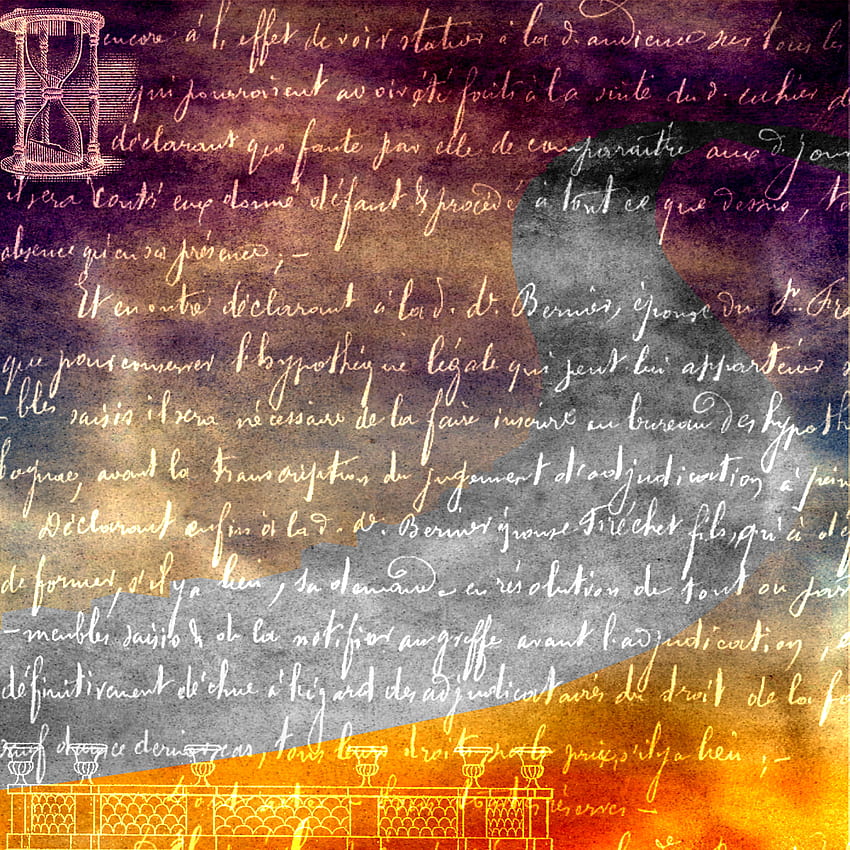 encore à l'effet de voir statuer à la d. audience sur tous les
qui pourraient avoir été faits à la suite du d. cahier de
déclarant que faute par elle de comparaître aux d. jour
il sera contre eux donné défaut & procédé à tout ce que dessus, t
absence qu'en sa présence ; —
Et en outre déclarant à la d. de. Bernier, épouse du Sr. Fra
que pour conserver l'hypothèque légale qui peut lui appartenir s
-bles saisis il sera nécessaire de la faire inscrire au bureau des hypoth
avant la transcription du jugement d'adjudication à pein
Déclarant enfin à la d. de. Bernier épouse Fréchet fils, qu'à dé
de former, s'il y a lieu, sa demande en résolution de tout ou par
-meubles saisis & de la notifier au greffe avant l'adjudication,
définitivement déchue à l'égard des adjudicataires du droit de la f
sauf dans ce dernier cas, tous leurs droits sur le prix, s'il y a lieu ; —
réserves —